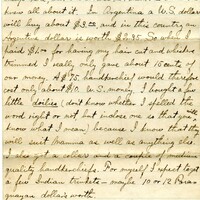 know all about it. In Argentina a U.S. dollar
will buy about $3.00 and in this country an
Argentina dollar is worth $2.35. So when I
paid $1.00 for having my hair cut and whiskers
trimmed I really only gave about 15 cents of
our money. A $.75 handkerchief would therefore
cost only about $.10 U.S. money. I bought a few
little doilies (don't know whether I spelled the
word right or not but suppose one so that you
know what I mean) because I know that they
will suit mamma as well as anything else.
I also got a collar and a couple of medium
quality handkerchiefs. For myself I expect to get
a few Indian trinkets – maybe 10 or 12 Para-
guayan dollars worth.